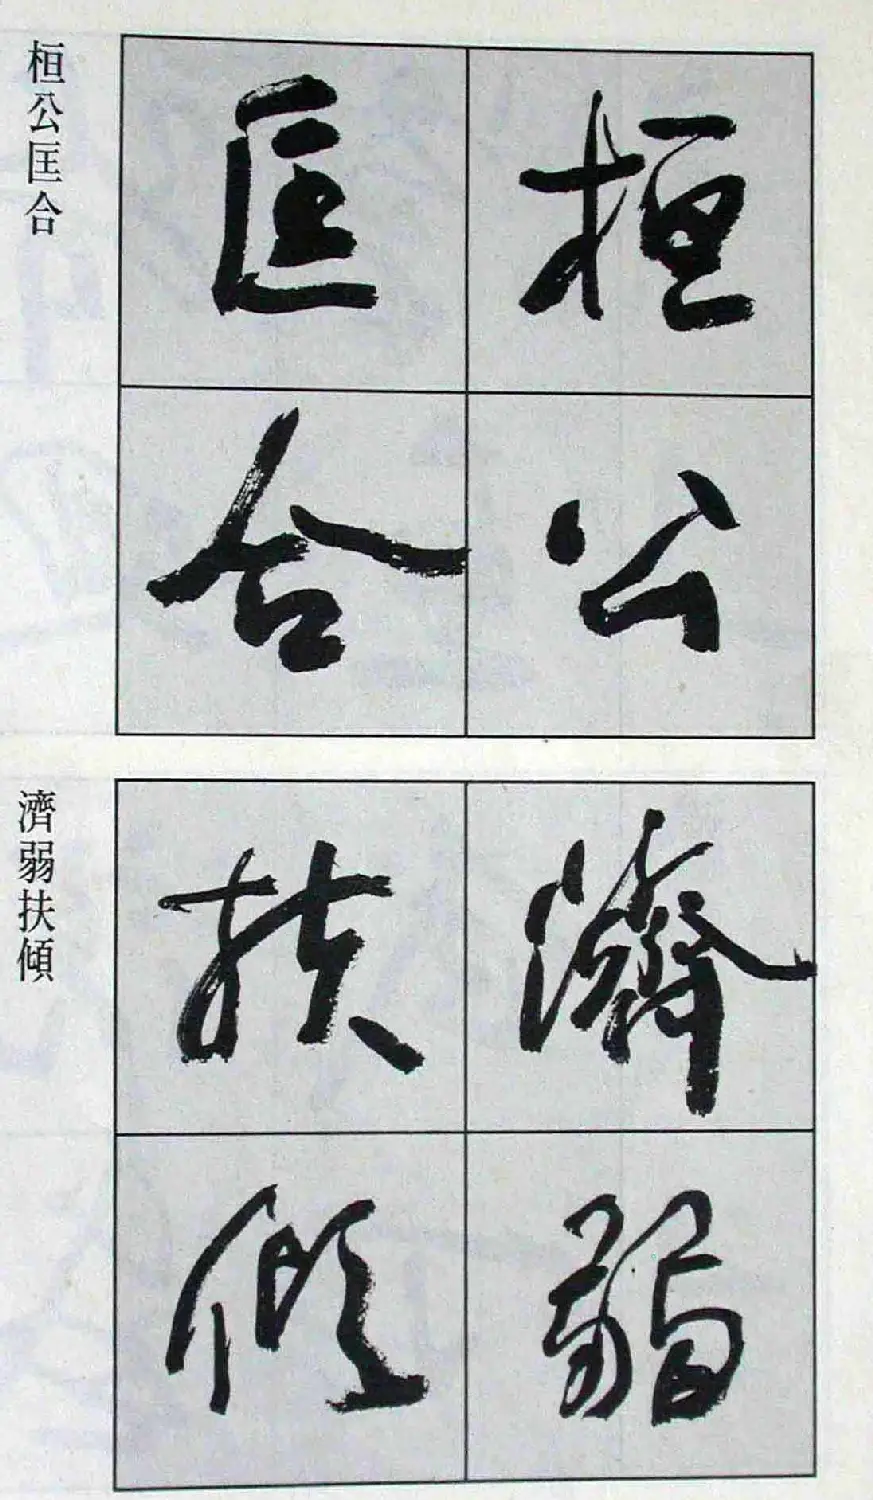 桓公
匡合
桓公匡合
濟弱
扶傾
濟弱扶傾